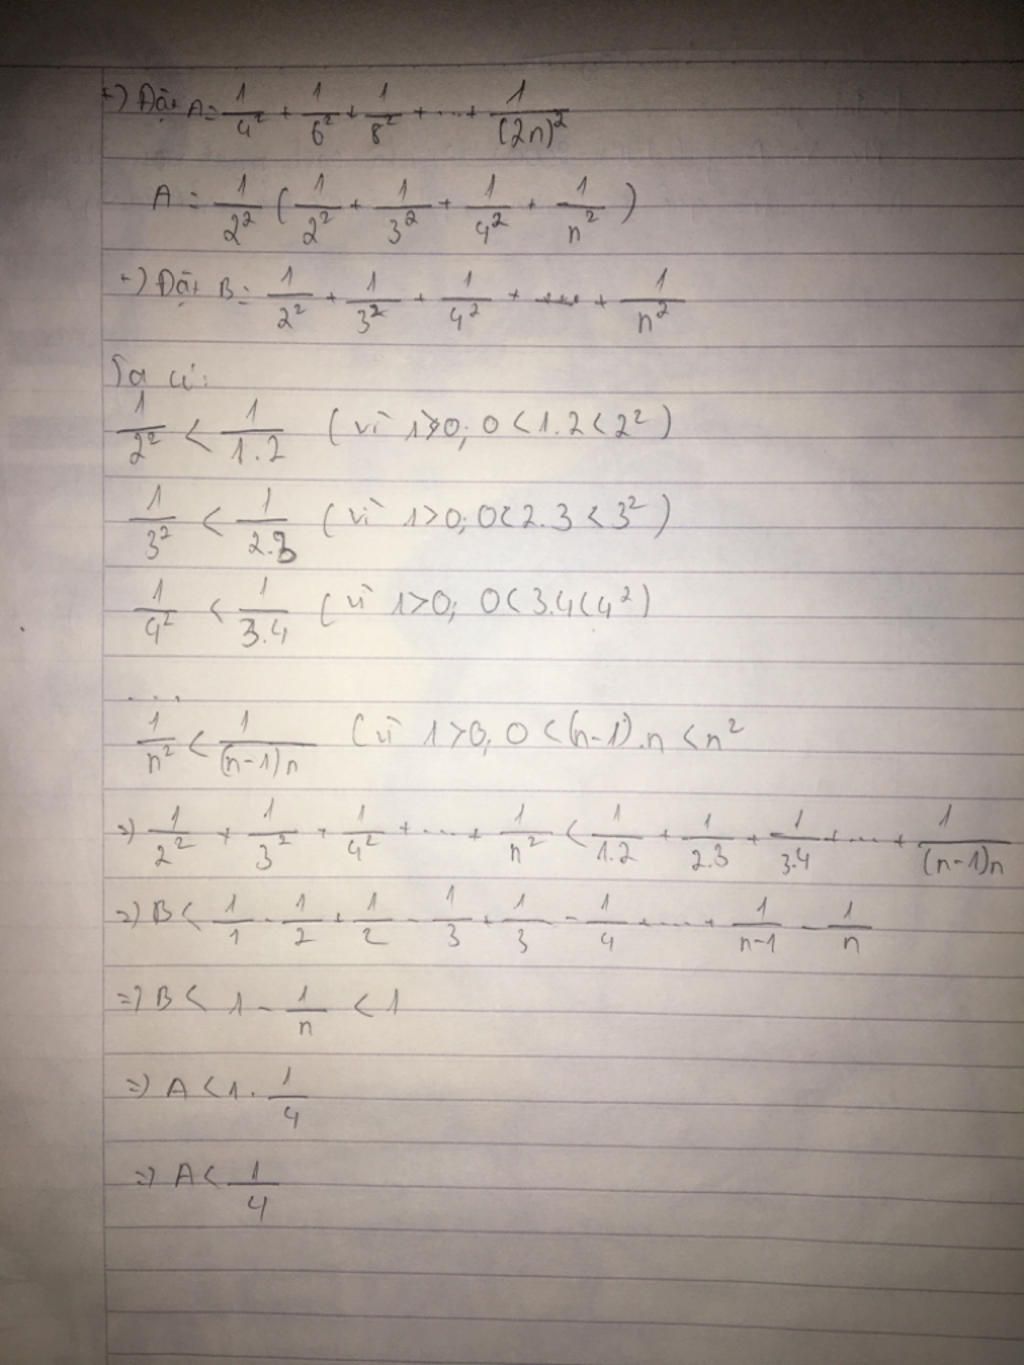 +) Đặt A = 1/4² + 1/6² + 1/8² + ... + 1/(2n)²
A = 1/2² ( 1/2² + 1/3² + 1/4² + 1/n² )
+) Đặt B = 1/2² + 1/3² + 1/4² + .... + 1/n²
Ta có:
1/2² < 1/1.2 ( vì 1>0; 0<1.2<2² )
1/3² < 1/2.3 ( vì 1>0; 0<2.3<3² )
1/4² < 1/3.4 ( vì 1>0; 0<3.4<4² )
....
1/n² < 1/(n-1)n (vì 1>0, 0<(n-1).n<n²
=> 1/2² + 1/3² + 1/4² + .... + 1/n² < 1/1.2 + 1/2.3 + 1/3.4 + ... + 1/(n-1)n
=> B < 1/1 - 1/2 + 1/2 - 1/3 + 1/3 - 1/4 + .... + 1/n-1 - 1/n
=> B < 1 - 1/n < 1
=> A < 1 . 1/4
=> A < 1/4